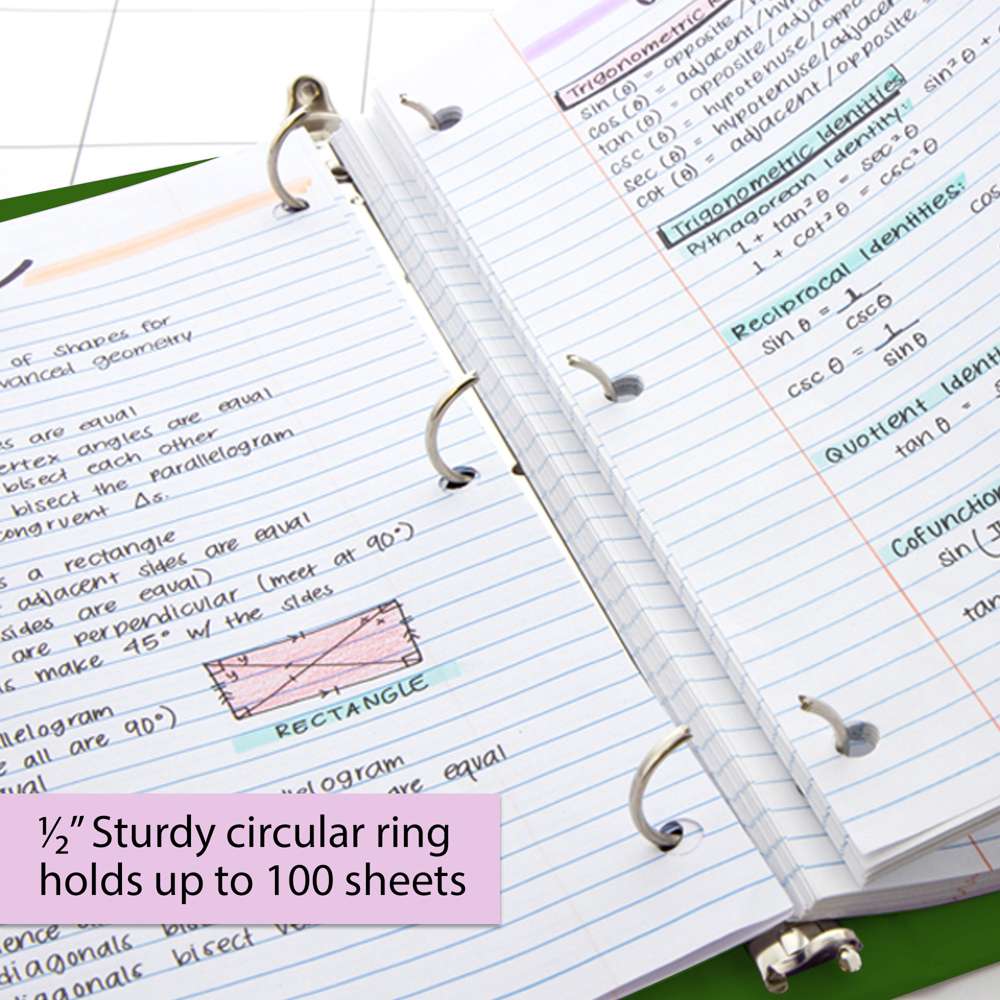 of shapes for
advanced geometry
are equal
vertex angles are equal
bisect each other
bisect the parallelogram
congruent Δs.
s a rectangle
adjacent sides are equal
sides are equal)
are perpendicular (meet at 90°)
make 45° w/ the sides
x x
y y
RECTANGLE
parallelogram
all are 90°)
parallelogram
are equal
½” Sturdy circular ring
holds up to 100 sheets
diagonals
diagonals bisect
Trigonometric
sin (θ) = opposite/
cos (θ) = adjacent/hyp
tan (θ) = opposite/adjac
csc (θ) = hypotenuse/oppo
sec (θ) = hypotenuse/adjacen
cot (θ) = adjacent/opposite
Trigonometric Identities
Pythagorean Identity: sin² θ +
1 + tan² θ = sec² θ
1 + cot² θ = csc² θ
Reciprocal Identities:
sin θ = 1
cscθ
cos
csc θ = 1
sinθ
Quotient Identi
tan θ =
Cofunction
sin (
tan